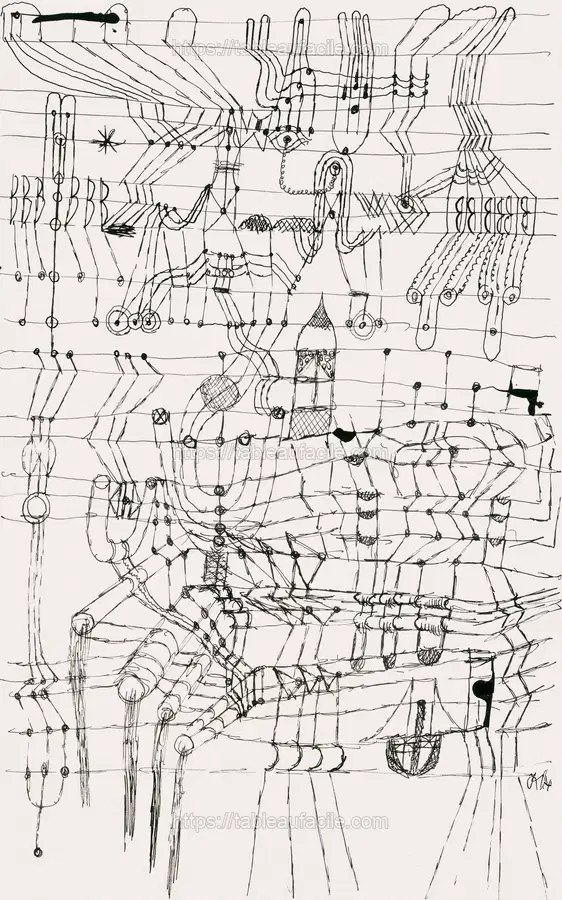 https://tableaufacile.com
https://tableaufacile.com
https://tableaufacile.com